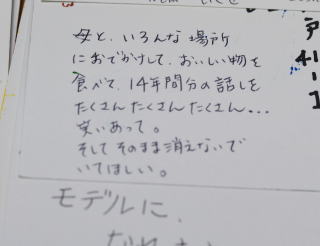 母と、いろんな場所
におでかけして、おいしい物を
食べて、14年間分の話しを
たくさんたくさんたくさん...
笑いあって。
そしてそのまま消えないで
いてほしい。
モデルに、